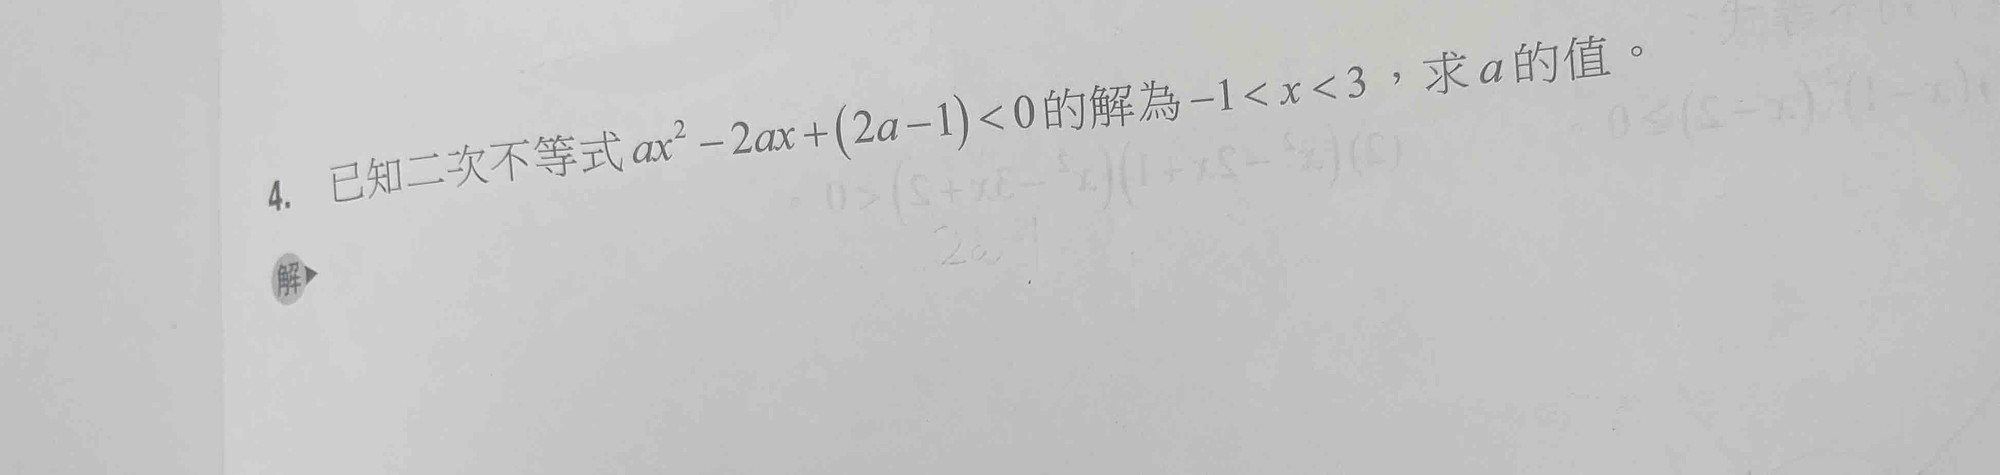 4. 已知二次不等式 ax² − 2ax + (2a − 1) < 0 的解為 −1 < x < 3，求 a 的值。
解